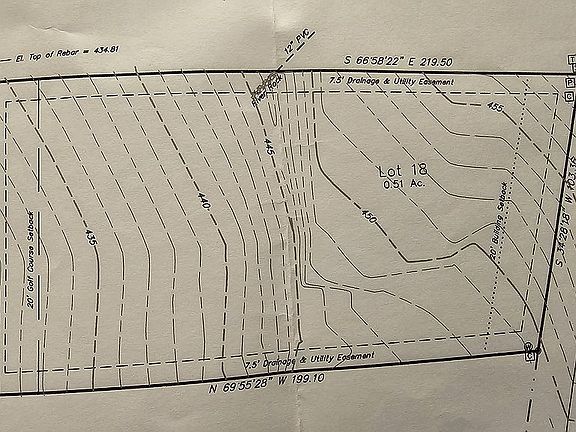 El. Top of Rebar = 434.81
12" PVC
S 66'58'22" E 219.50
7.5' Drainage & Utility Easement
River Rock
455
445
Lot 18
0.51 Ac.
440
450
435
20' Golf Course Setback
20' Building Setback
7.5' Drainage & Utility Easement
N 69'55'28" W 199.10